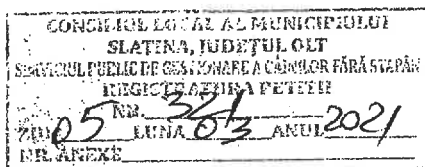 CONSILIUL LOCAL AL MUNICIPIULUI
SLATINA, JUDEȚUL OLT
SERVICIUL PUBLIC DE GESTIONARE A CÂINILOR FĂRĂ STĂPÂN
REGISTRATURA PETIȚII
NR. 321
ZIUA 05 LUNA 03 ANUL 2021
NR. ANEXE